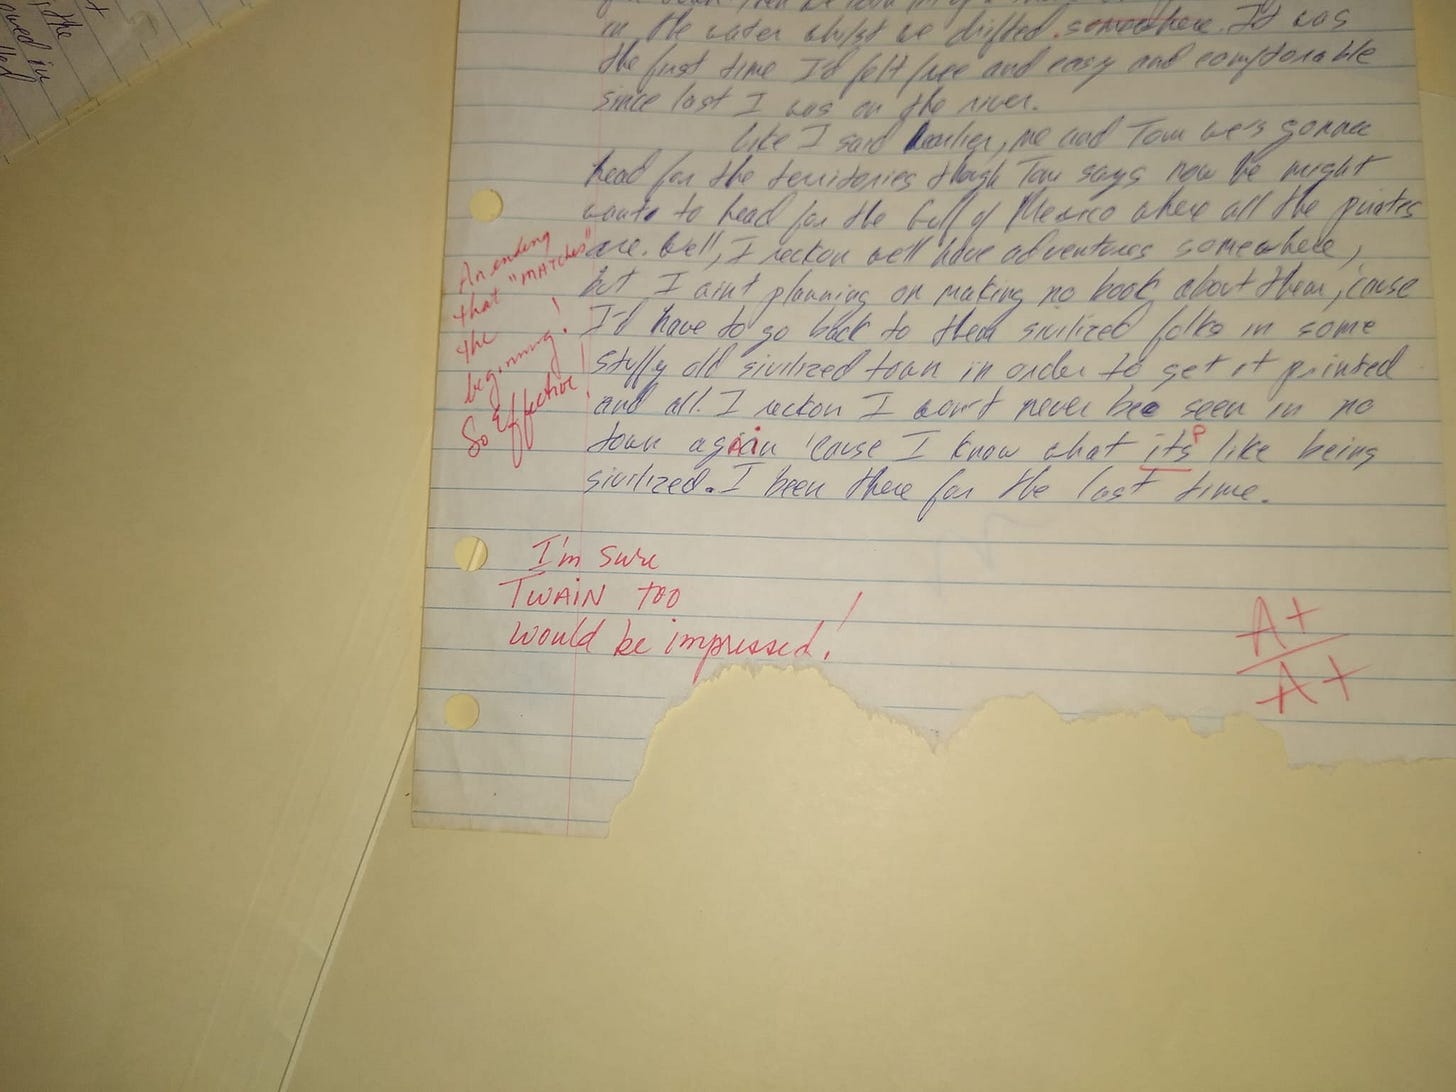 the
in the water whilst we drifted somewhere. It was
the first time I'd felt free and easy and comfortable
since last I was on the river.
Like I said earlier, me and Tom we's gonna
head for the territories though Tom says now he might
want to head for the Gulf of Mexico where all the pirates
are. Well, I reckon we'll have adventures somewhere,
but I ain't planning on making no book about them, 'cause
I'd have to go back to them sivilized folks in some
stuffy old sivilized town in order to get it printed
and all. I reckon I won't never be seen in no
town again 'cause I know what its like being
sivilized. I been there for the last time.
An ending
that "MATCHES"
the
beginning!
So Effective!
P
I'm sure
TWAIN TOO
would be impressed!
A+
A+